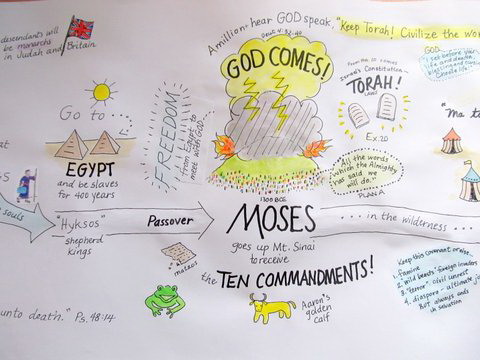 descendants will
be monarchs
in Judah and Britain
Go to ....
EGYPT
and be slaves
for 400 years
souls
"Hyksos"
shepherd
kings
unto death." Ps. 48:14
FREEDOM
from Egypt to
meet with God
Passover
matzos
A million hear GOD speak, "Keep Torah! Civilize the
Deut. 4:32-40
GOD COMES!
1300 BCE
MOSES
goes up Mt. Sinai
to receive
the TEN COMMANDMENTS!
Aaron's
golden
calf
From the 10 comes
Israel's Constitution—
TORAH!
LAWS
Ex. 20
"All the words
which the Almighty
has said we
will do."
PLAN A
... in the wilderness ...
GOD
"I set before you
life and death,
blessing and
Choose life."
"Ma
Keep this Covenant or else...
1. Famine
2. Wild beasts - foreign invaders
3. "terror" - civil unrest
4. diaspora - ultimate
But always ends
in salvation